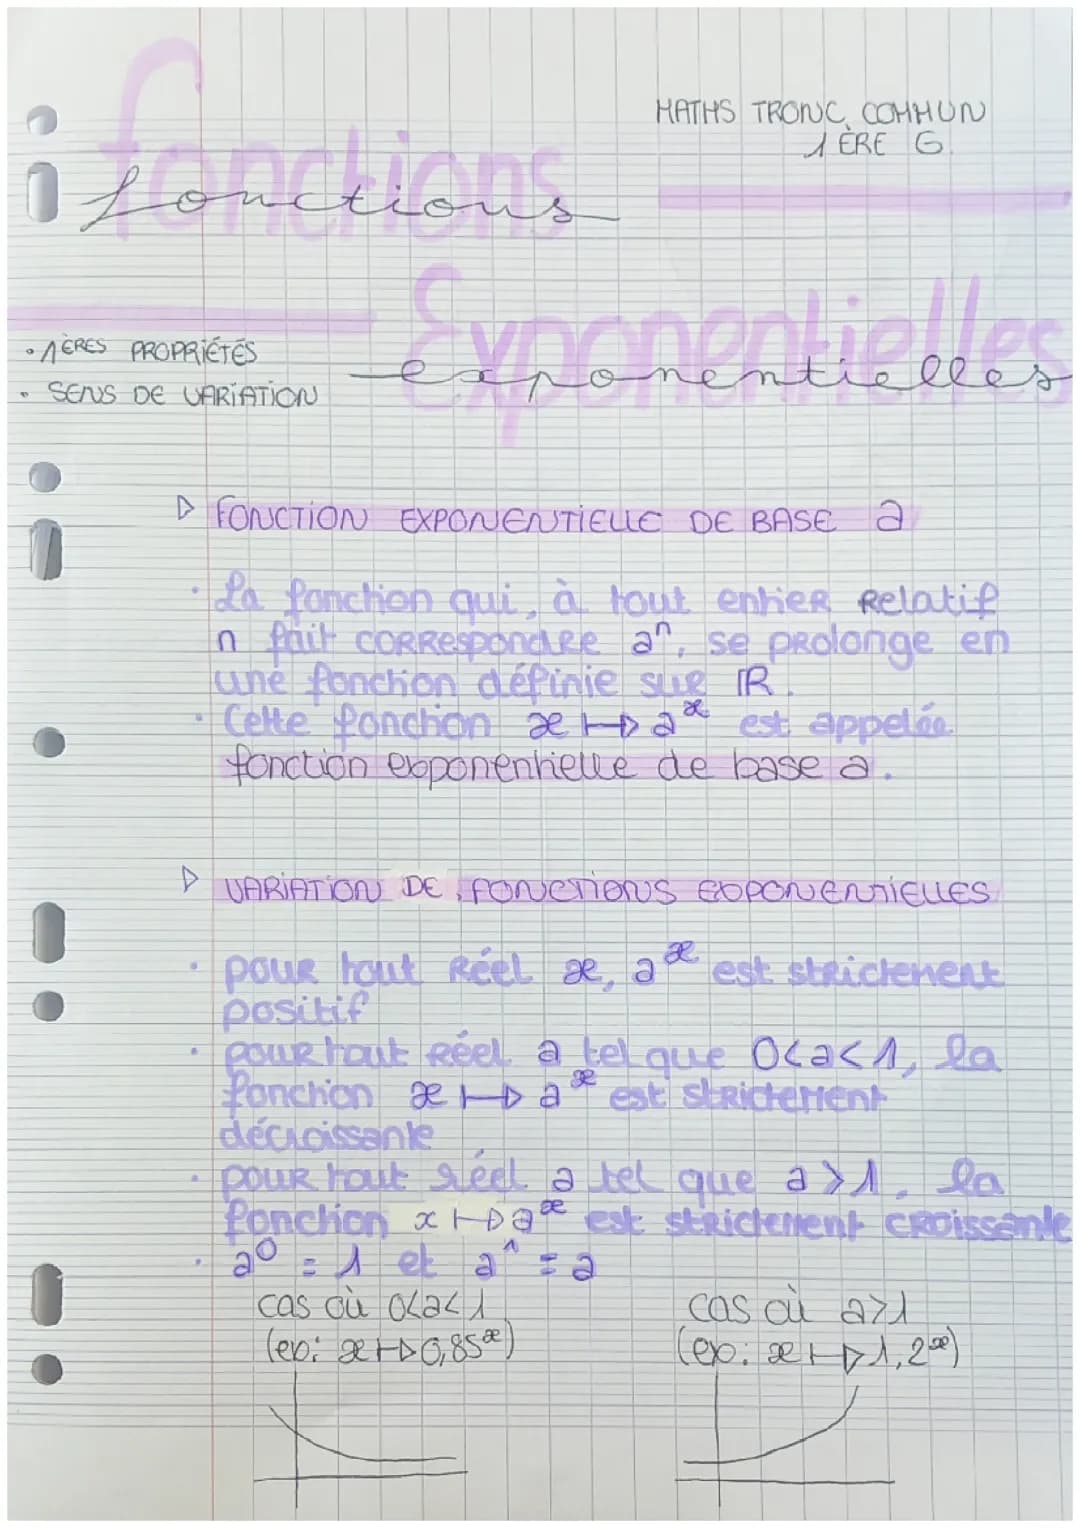 MATHS TRONC COMMUN
1ÈRE G.
fonctions
fonctions
Exponentielles
exponentielles
• 1ÈRES PROPRIÉTÉS
• SENS DE VARIATION
▷ FONCTION EXPONENTIELLE DE BASE a
• La fonction qui, à tout entier relatif
n fait correspondre aⁿ, se prolonge en
une fonction définie sur ℝ.
• Cette fonction x ↦ aˣ est appelée
fonction exponentielle de base a.
▷ VARIATION DE FONCTIONS EXPONENTIELLES
• pour tout réel x, aˣ est strictement
positif
• pour tout réel a tel que 0<a<1, la
fonction x ↦ aˣ est strictement
décroissante
• pour tout réel a tel que a>1, la
fonction x ↦ aˣ est strictement croissante
• a⁰ = 1 et a¹ = a
cas où 0<a<1
(ex: x ↦ 0,85ˣ)
cas où a>1
(ex: x ↦ 1,2ˣ)